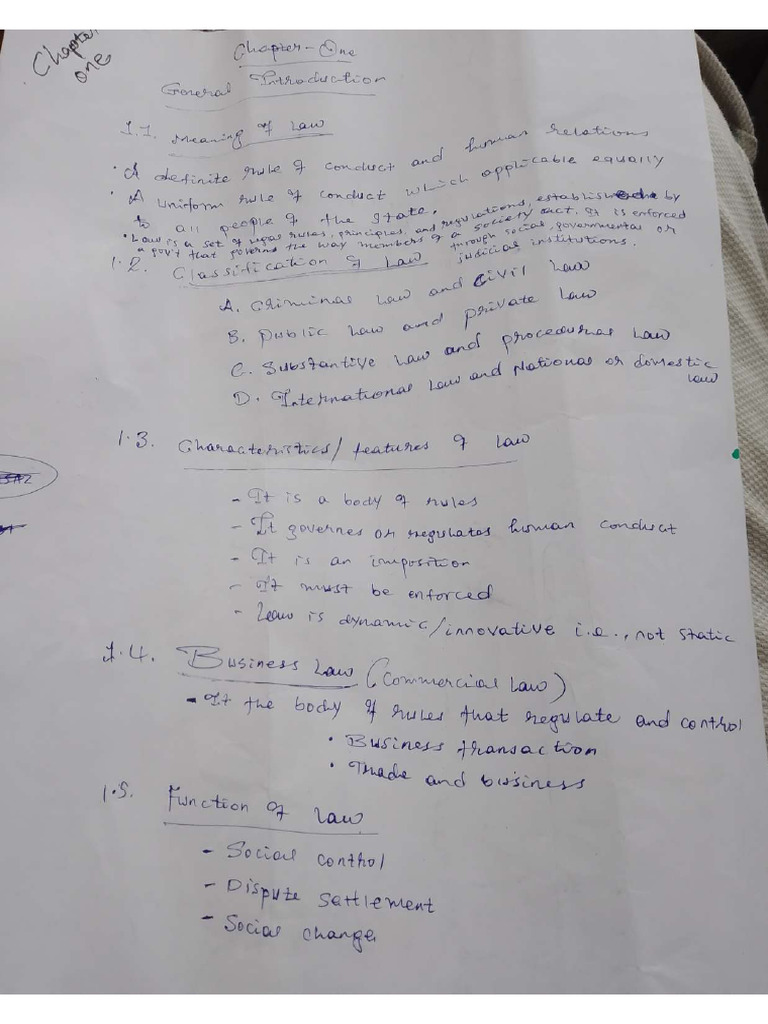 Chapter
one
Chapter - One
General Introduction
1.1. Meaning of Law
• A definite rule of conduct and human relations
• A uniform rule of conduct which applicable equally
to all people of the state.
• Law is a set of legal rules, principles, and regulations, established by
a gov't that governs the way members of a society act. It is enforced
through social, governmental or
judicial institutions.
1.2. Classification of Law
A. Criminal Law and Civil Law
B. Public Law and private Law
C. Substantive Law and procedural Law
D. International Law and National or domestic
Law
1.3. Characteristics/features of Law
- It is a body of rules
- It governes or regulates human conduct
- It is an imposition
- It must be enforced
- Law is dynamic/innovative i.e., not static
1.4. Business Law (Commercial Law)
- It the body of rules that regulate and control
• Business transaction
• Trade and business
1.5. Function of Law
- Social control
- Dispute sattlement
- Social change